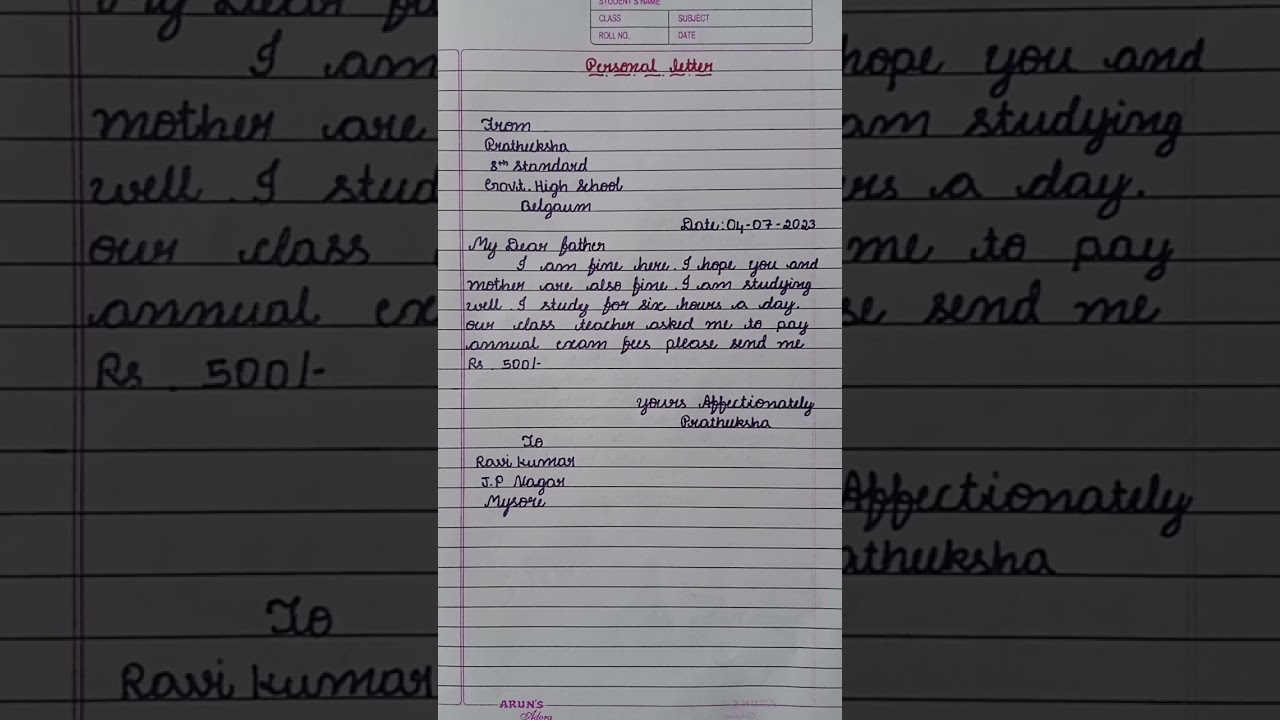 STUDENT'S NAME
CLASS SUBJECT
ROLL NO. DATE
Personal letter
From
Pratheeksha
8th Standard
Govt. High School
Belgaum
Date: 04-07-2023
My Dear father
I am fine here. I hope you and
mother are also fine. I am studying
well. I study for six hours a day.
our class teacher asked me to pay
annual exam fees please send me
Rs. 500/-
yours Affectionately
Pratheeksha
To
Ravi kumar
J.P Nagar
Mysore
ARUN'S
Adora